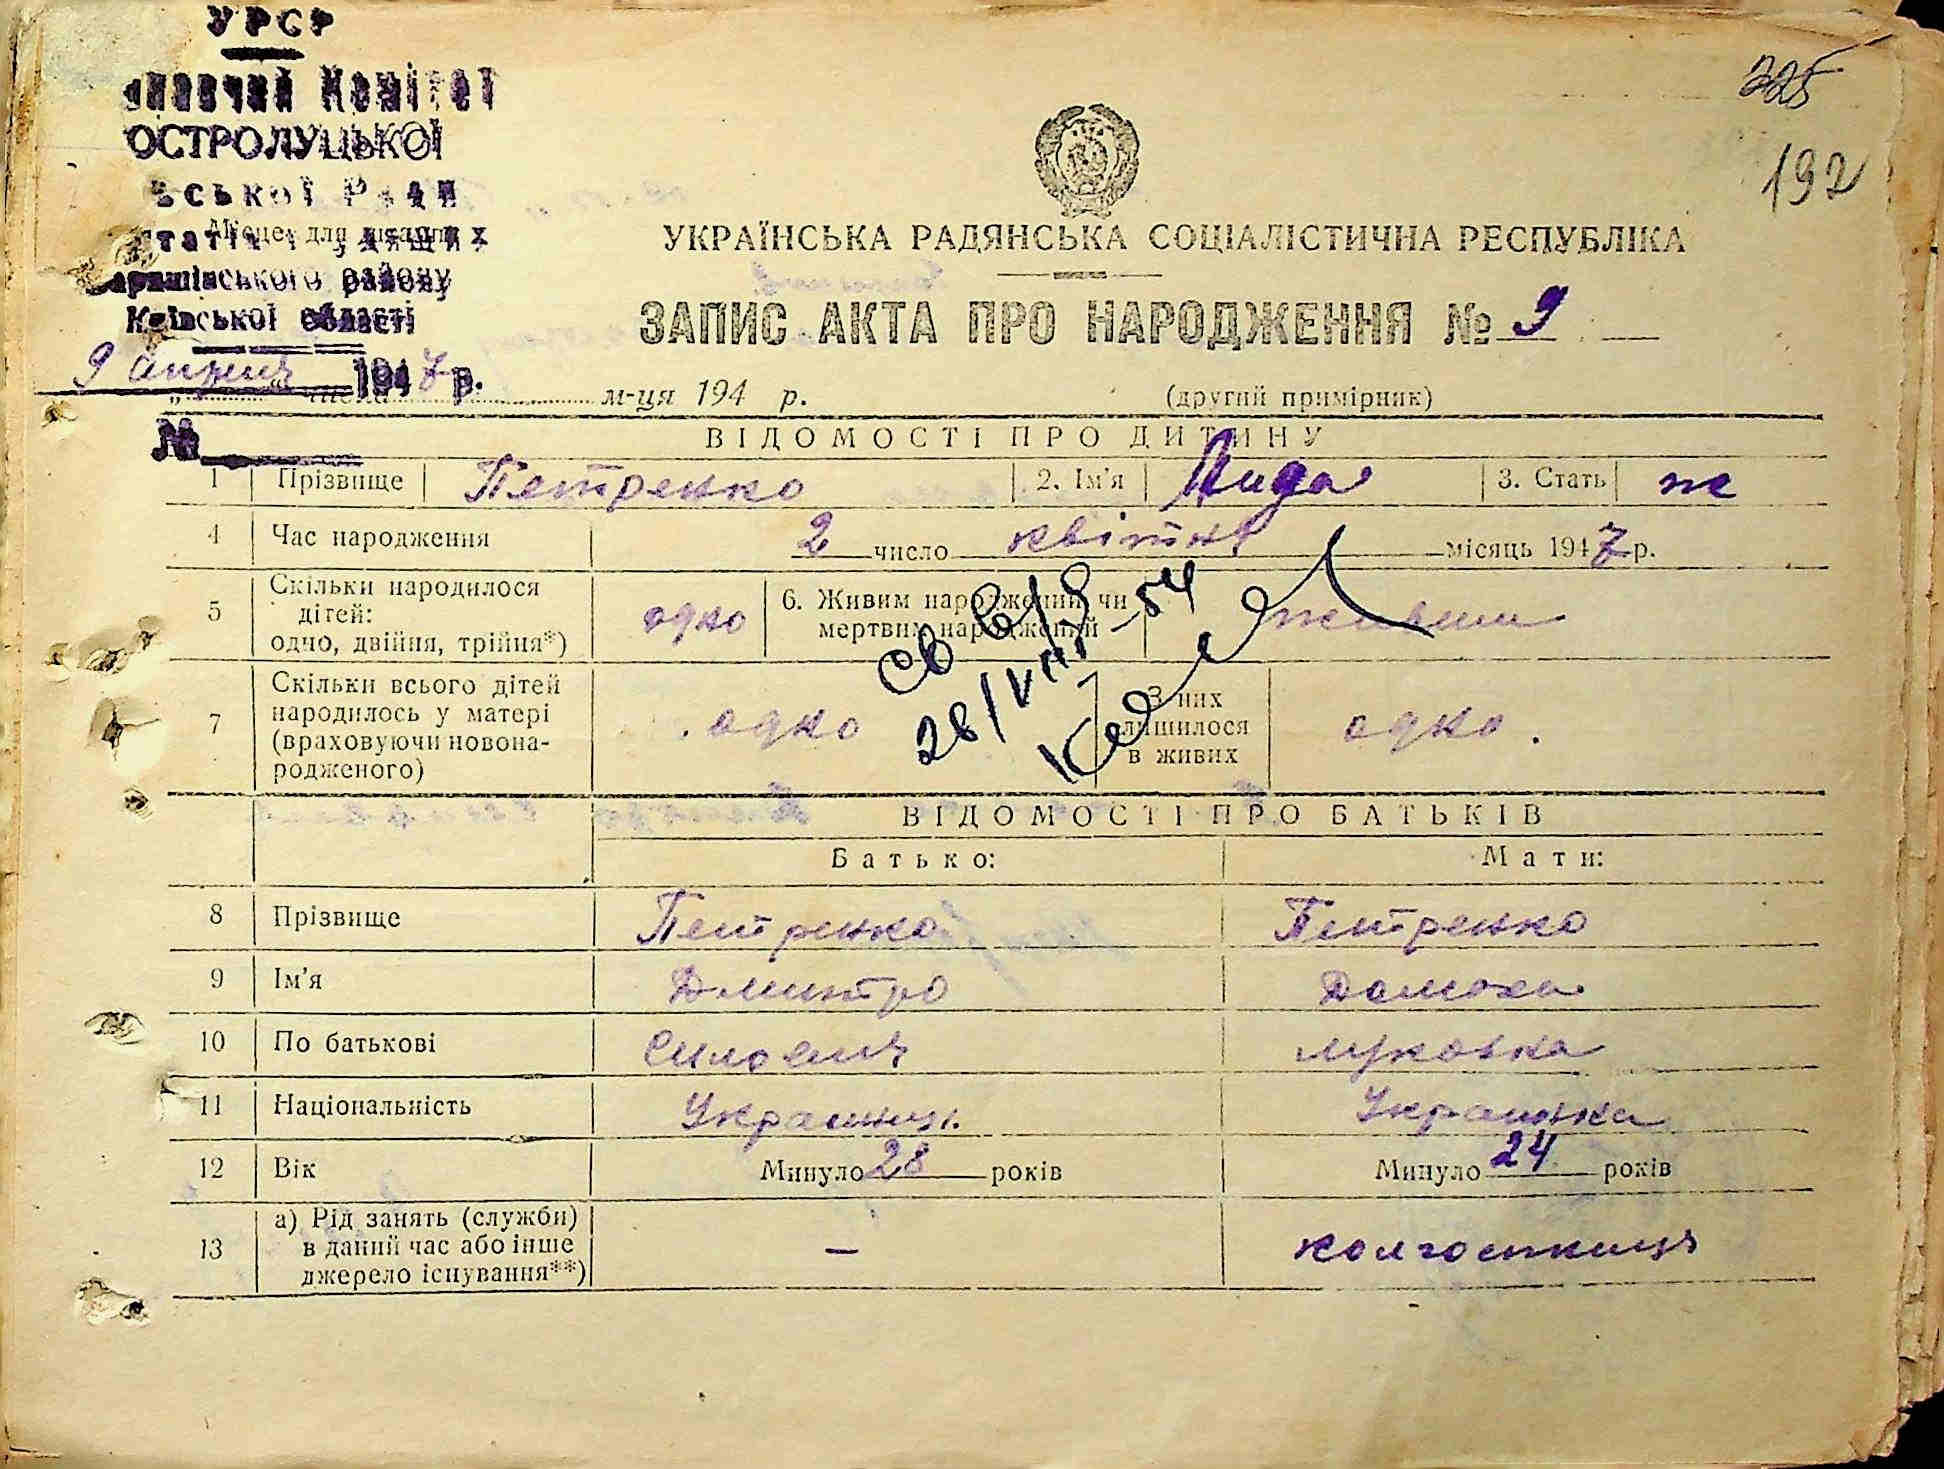 УРСР
Комітет
ОСТРОЛУЦЬКОЇ
Ради
району
Київської області
9 апреля 1947 р.
№
225
192
УКРАЇНСЬКА РАДЯНСЬКА СОЦІАЛІСТИЧНА РЕСПУБЛІКА
ЗАПИС АКТА ПРО НАРОДЖЕННЯ № 9
м-ця 194 р.
(другий примірник)
ВІДОМОСТІ ПРО ДИТИНУ
1 Прізвище Петренко 2. Ім'я Лида 3. Стать же
4 Час народження 2 число квітня місяць 1947 р.
5 Скільки народилося дітей: одно, двійня, трійня*) одно 6. Живим народжений чи мертвим народжений живим
св в/з
28/VIII-54
7 Скільки всього дітей народилось у матері (враховуючи новонародженого) одно З них лишилося в живих одно.
ВІДОМОСТІ ПРО БАТЬКІВ
Батько: Мати:
8 Прізвище Петренко Петренко
9 Ім'я Дмитро Домаха
10 По батькові Силович Луковна
11 Національність Украинц. Украинка
12 Вік Минуло 28 років Минуло 24 років
13 а) Рід занять (служби) в даний час або інше джерело існування**) — колгоспниця